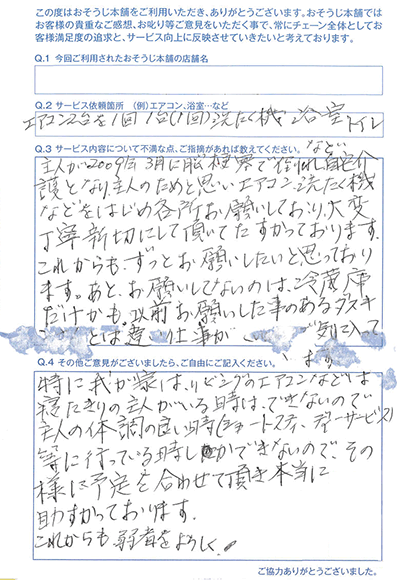 この度はおそうじ本舗をご利用いただき、ありがとうございます。おそうじ本舗では
お客様の貴重なご感想、お叱り等ご意見をいただく事で、常にチェーン全体としてお
客様満足度の追求と、サービス向上に反映させていきたいと考えております。
Q.1 今回ご利用されたおそうじ本舗の店舗名
Q.2 サービス依頼箇所 （例）エアコン、浴室…など
エアコン2台を1回1台(1回)洗たく機 浴室 トイレ
など
Q.3 サービス内容について不満な点、ご指摘があれば教えてください。
主人が2009年3月に脳梗塞で倒れ自宅介
護となり、主人のためと思いエアコン、洗たく機
などをはじめ各所お願いしており、大変
丁寧親切にして頂いてたすかっております。
これからも、ずっとお願いしたいと思っており
ます。あと、お願いしてないのは、冷蔵庫
だけかも。以前お願いした事のあるダスキ
とは違 仕事が 気に入って
Q.4 その他ご意見がございましたら、ご自由にご記入ください。
特に我が家は、リビングのエアコンなどは
寝たきりの主人がいる時は、できないので
主人の体調の良い時(ショートスティ、ディーサービス)
等に行っている時しかできないので、その
様に予定を合わせて頂き本当に
助すかっております。
これからも弱者をよろしく。
ご協力ありがとうございました。